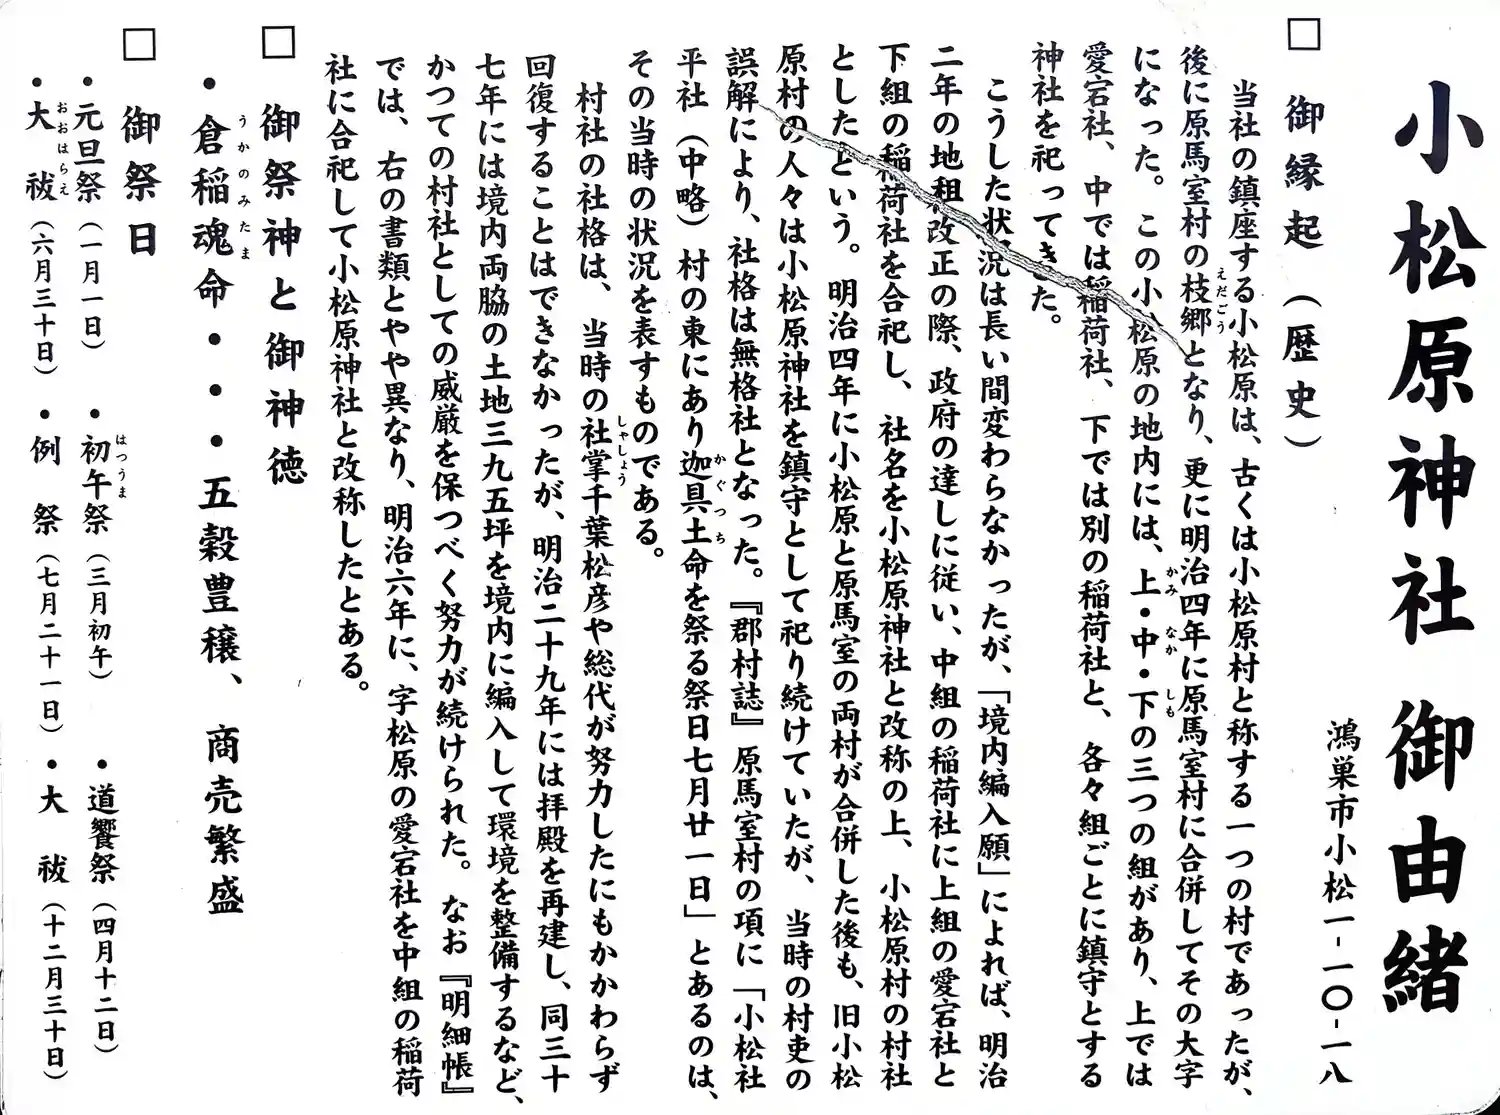 小松原神社 御由緒
鴻巣市小松一-一〇-一八
□ 御縁起（歴史）
当社の鎮座する小松原は、古くは小松原村と称する一つの村であったが、
後に原馬室村の枝郷となり、更に明治四年に原馬室村に合併してその大字
えだごう
になった。この小松原の地内には、上・中・下の三つの組があり、上では
かみ なか しも
愛宕社、中では稲荷社、下では別の稲荷社と、各々組ごとに鎮守とする
神社を祀ってきた。
こうした状況は長い間変わらなかったが、「境内編入願」によれば、明治
二年の地租改正の際、政府の達しに従い、中組の稲荷社に上組の愛宕社と
下組の稲荷社を合祀し、社名を小松原神社と改称の上、小松原村の村社
としたという。明治四年に小松原と原馬室の両村が合併した後も、旧小松
原村の人々は小松原神社を鎮守として祀り続けていたが、当時の村吏の
誤解により、社格は無格社となった。『郡村誌』原馬室村の項に「小松社
平社（中略）村の東にあり迦具土命を祭る祭日七月廿一日」とあるのは、
かぐつち
その当時の状況を表すものである。
村社の社格は、当時の社掌千葉松彦や総代が努力したにもかかわらず
しゃしょう
回復することはできなかったが、明治二十九年には拝殿を再建し、同三十
七年には境内両脇の土地三九五坪を境内に編入して環境を整備するなど、
かつての村社としての威厳を保つべく努力が続けられた。なお『明細帳』
では、右の書類とやや異なり、明治六年に、字松原の愛宕社を中組の稲荷
社に合祀して小松原神社と改称したとある。
□ 御祭神と御神徳
・倉稲魂命・・・五穀豊穣、商売繁盛
うかのみたま
□ 御祭日
・元旦祭（一月一日） ・初午祭（三月初午） ・道饗祭（四月十二日）
はつうま
・大祓（六月三十日） ・例祭（七月二十一日） ・大祓（十二月三十日）
おおはらえ